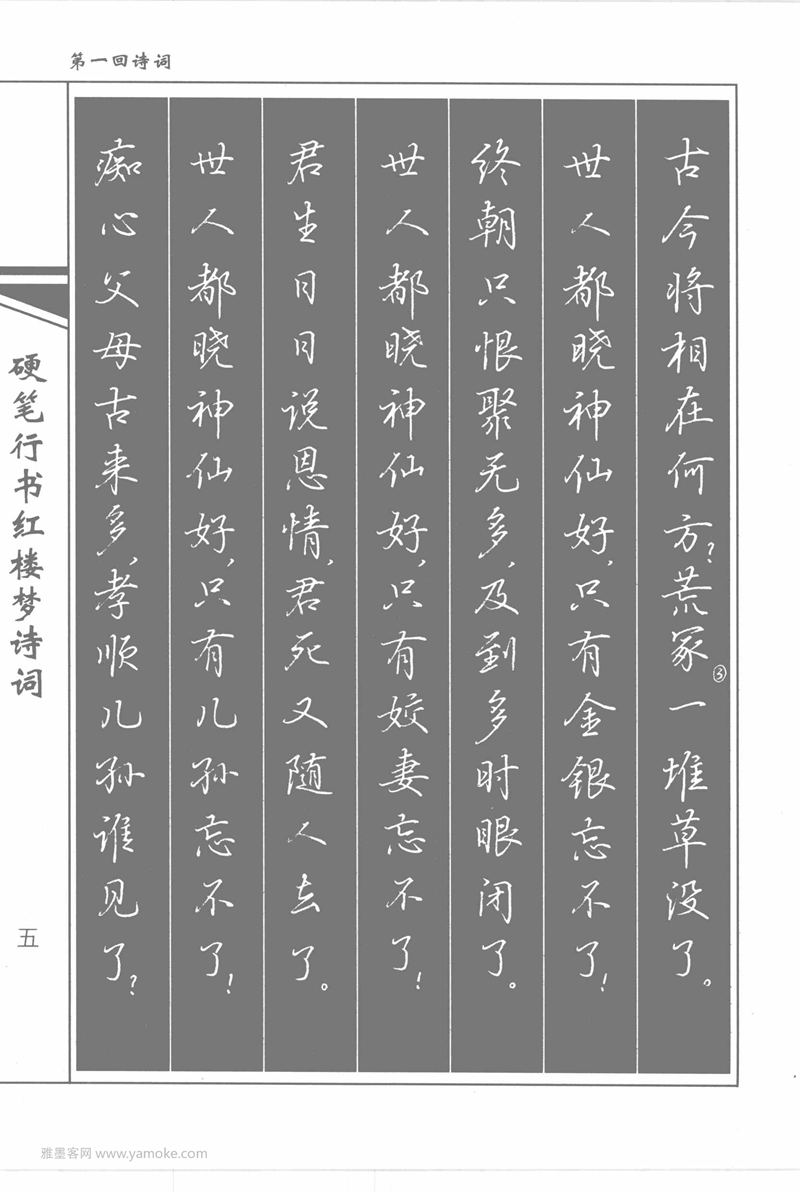 第一回诗词
古今将相在何方？荒冢③一堆草没了。
世人都晓神仙好，只有金银忘不了！
终朝只恨聚无多，及到多时眼闭了。
世人都晓神仙好，只有姣妻忘不了！
君生日日说恩情，君死又随人去了。
世人都晓神仙好，只有儿孙忘不了！
痴心父母古来多，孝顺儿孙谁见了？
硬笔行书红楼梦诗词
五
雅墨客网 www.yamoke.com